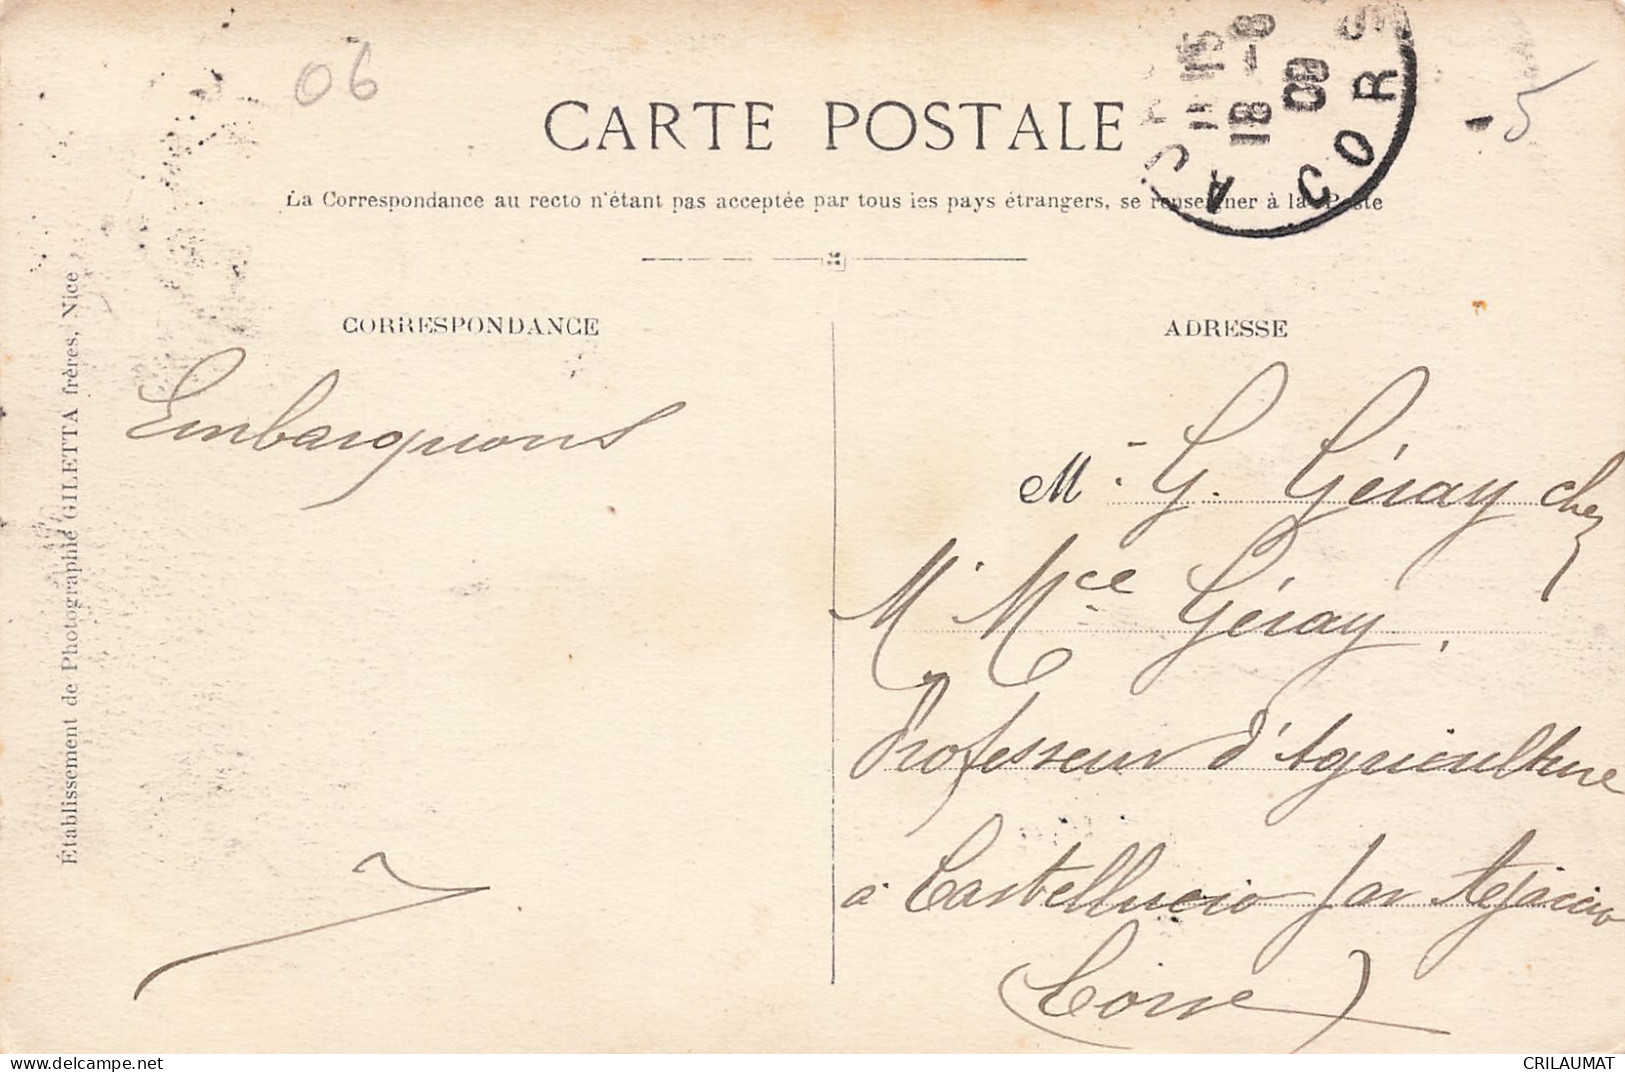 06
CARTE POSTALE
5
La Correspondance au recto n'étant pas acceptée par tous les pays étrangers, se renseigner à la Poste
18 -8
09
CORS
CORRESPONDANCE
ADRESSE
Embarquons
M. G. Géray chez
M. Mce Géray,
Professeur d'Agriculture
à Castelluccio par Ajaccio
(Corse)
Établissement de Photographie GILETTA frères, Nice
CRILAUMAT